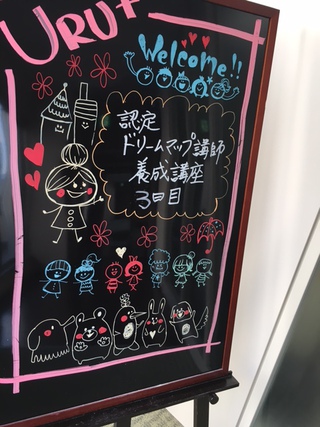 URU+
Welcome!!
認定
ドリームマップ講師
養成講座
3回目